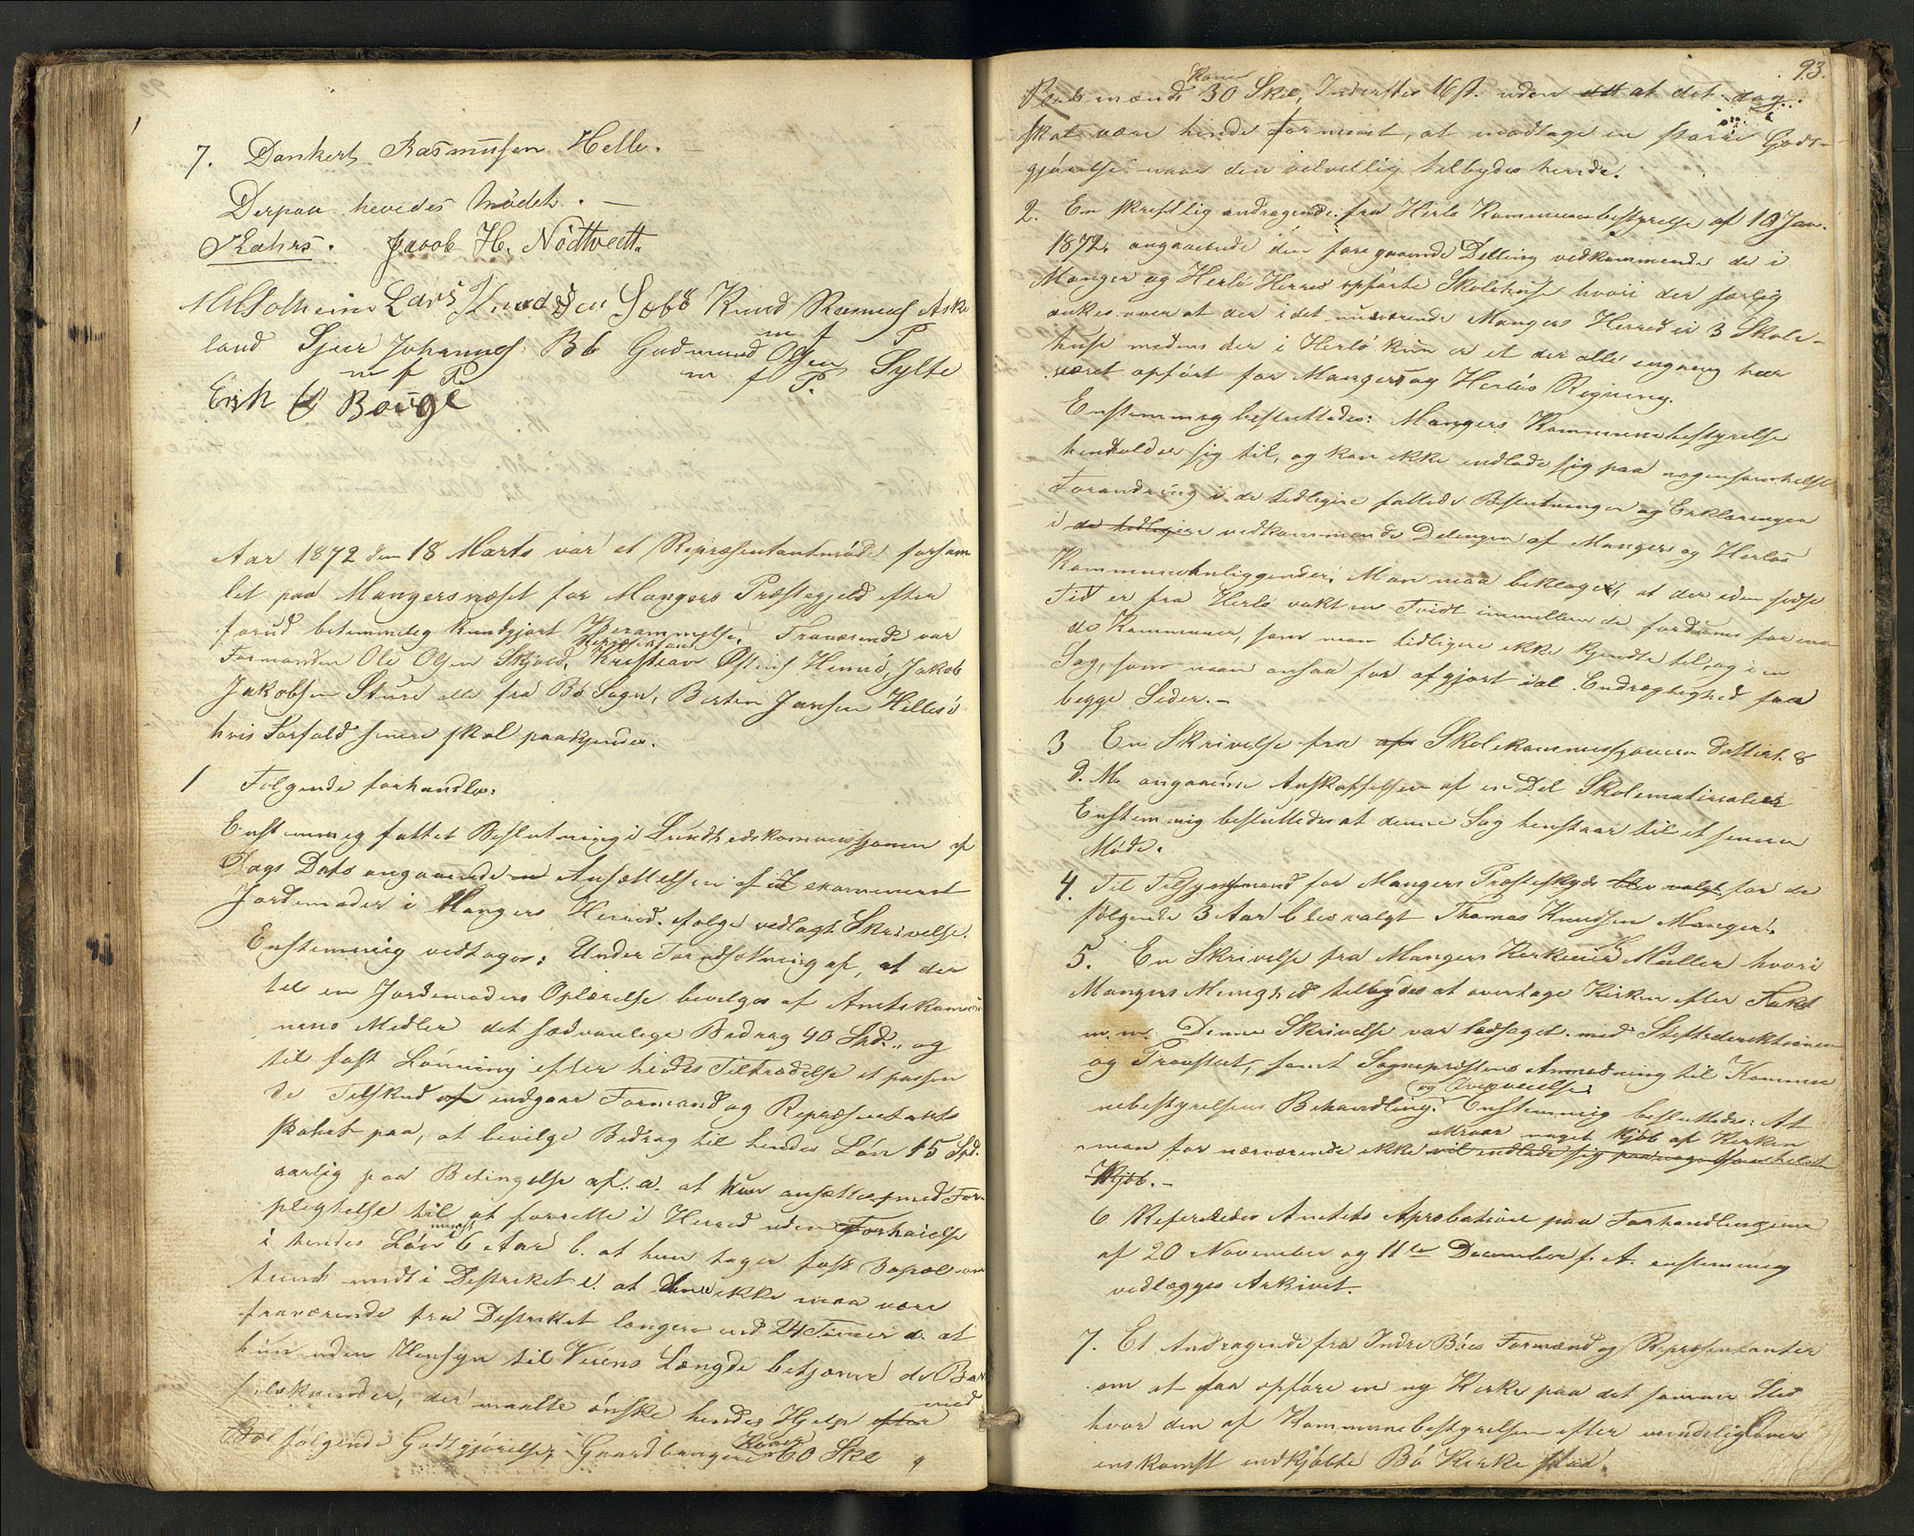 7. Dankert Rasmusen Helle.
Derpaa hevedes Mødet.
Kahrs. Jacob H. Nødtvedt.
Lars Knudsen Sæbø Knud Rasmus Aske
land Sjur Johannes. Bø Gudmund Olsen Sylte
m f P
m f P. m f P.
Erik O Bouge
Aar 1872 den 18 Marts var et Repræsentantmøde forsam
let paa Mangersnæset for Mangers Præstegjeld efter
forud betimmelig kundgjort Berammelse. Fraværende var
Formanden Ole Olsen Skjold, Repræsentant Kristian Østins Hernø, Jakob
Jakobsen Sture alle fra Bø Sogn, Berten Jansen Hellesø
hvis Forfald senere skal paakjendes.
1 Følgende forhandles:
Enstemmig fattet Beslutning i Sundhedskommissjonen af
Dags Dato angaaende en Ansættelsen af et examineret
Jordemoder i Mangers Herred. ifølge vedlagt Skrivelse.
Enstemmig vedtoges: Under Forudsætning af, at der
til en Jordemoders Oplærelse bevilges af Amtskommu
nens Medler det sædvanlige Bidrag 40 Spd., og
til fast Lønning efter hendes Tiltrædelse et passen
de Tilskud indgaar Formand og Repræsentant
skabet paa, at bevilge Bidrag til hendes Løn 15 Spd.
aarlig paa Betingelse af: a. at hun ansættes med For
pligtelse til at forrette i Herred uden Forhøielse
i hendes Løn mindst 6 Aar b. at hun tager fast Bopæl om
trent midt i Destriket c. at hun ikke maa være
fraværende fra Destriket længere end 24 Timer d. at
hun uden Hensyn til Veiens Længde betjener de Bar
selskvinder, der maatte ønske hendes Hjelp efter med
følgende Godtgjørelse, Gaardbrugere Koner 60 Skl
93.
Pladsmænds Koner 30 Skl, Inderster 16 s. uden at det dog
skal være hende formeent, at modtage en større Godt-
gjørelse naar den velvillig tilbydes hende.
2. En skriftlig andragende fra Herlø Kommunebestyrelse af 19 Jan.
1872, angaaende den foregaaende Delling vedkommende de i
Manger og Herlø Herred opførte Skolehuse hvori der særlig
ankes over at der i det nuværende Mangers Herred er 3 Skole-
huse medens der i Herlø kun er et der alle engang har
været opført for Mangers og Herløs Regning.
Enstemmig besluttedes: Mangers Kommunebestyrelse
henholder sig til, og kan ikke indlade sig paa nogensomhelst
Forandring i de tidligere fattede Beslutninger og Erklæringer
i de tidligere vedkommende Delingen af Mangers og Herløs
Kommuneanliggender. Man maa beklage, at der iden sidste
Tid er fra Herlø vakt en Tvist immellem de fordums forene
de Kommuner, som man tidligere ikke kjendte til, og i en
Sag, som man ansaa for afgjort i al Endrægtighed fra
begge Sider.-
3 En Skrivelse fra Skolekommissjonen dattert 8
d. M. angaaende Anskaffelsen af en Del Skolematrialier
Enstemmig besluttedes at denne Sag henstaar til et senere
Møde.
4. Til Tilsynsmand for Mangers Præsteskyds blev valgt for de
følgende 3 Aar blev valgt Thomas Knudsen Manger.
5. En Skrivelse fra Mangers Kirkeeier Müller hvori
Mangers Menighed tilbydes at overtage Kirken efter Takst
m. m. Denne Skrivelse var ledsaget med Stiftsdirektionen
og Provstiet, samt Sognepræstens Anmodning til Kommu
nebestyrelsens Behandling og Overveielse. Enstemmig besluttedes: At
man for nærværende ikke attraar noget Kjøb af Kirken vil indlade sig paa nogetsomhelst
Kjøb.-
6 Refereredes Amtets Aprobation paa Forhandlingerne
af 20 November og 11te December f. A. enstemmig
vedlægges Arkivet.
7. Et Andragende fra Indre Bøes Formænd og Repræsentanter
om at faa opføre en ny Kirke paa det samme Sted
hvor den af Kommunebestyrelsen efter mindelig Over
enskomst indkjøbte Bø Kirke staar.